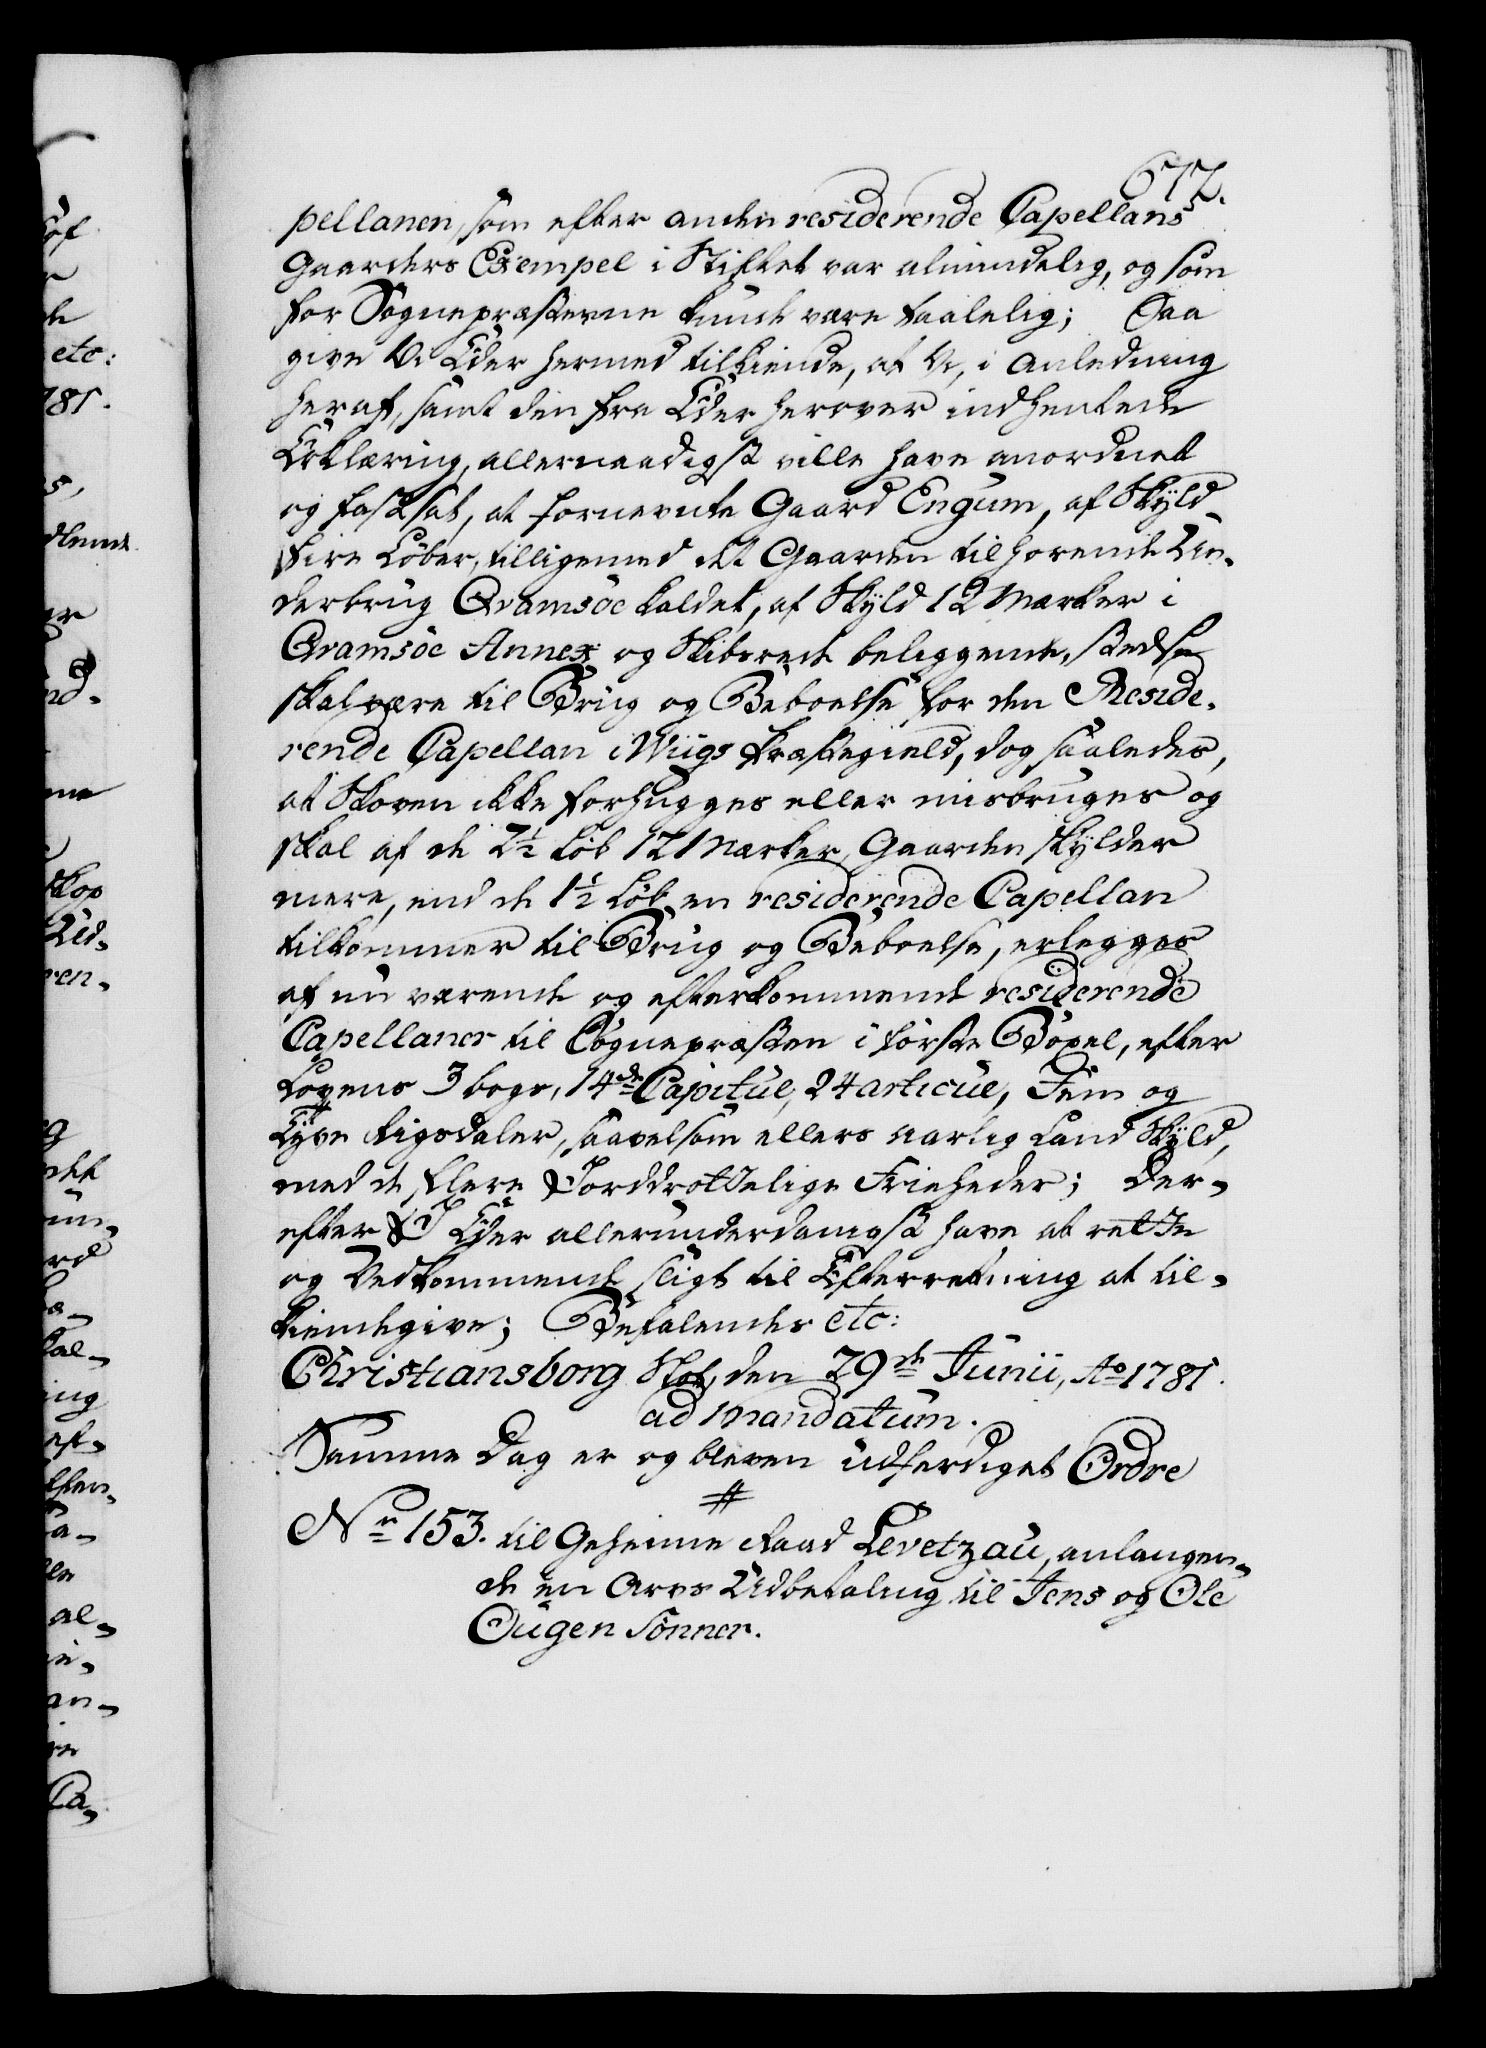 672.
pellanen, som efter anden residerende Capellans
Gaarders Exempel i Stiftet var almindelig, og som
for Sognepræsterne kunde være taalelig; Saa
give Vi Eder hermed tilkiende, at Vi, i Anledning
heraf, samt den fra Eder herover indhentede
Erklæring, allernaadigst ville have anordnet
og fastsat, at fornevnte Gaard Engum, af Skyld
fire Løber, tilligemed det Gaarden tilhørende Un-
derbrug Qvamsøe kaldet, af Skyld 12 Marker i
Qvamsöe Annex og Skibrede beliggende, stedse
skal være til Brug og Beboelse for den Reside-
rende Capellan i Wiigs Præstegield, dog saaledes,
at Skoven ikke forhugges eller misbruges og
skal af de 2½ Løb 12 Marker, Gaarden skylder
mere, end de 1½ Løb en residerende Capellan
tilkommer til Brug og Beboelse, erlegges
af nu værende og efterkommende residerende
Capellaner til Sognepræsten i første Bøxel, efter
Lovens 3 bogs, 14de Capitul, 24 articul, Fem og
Tyve Rigsdaler, saavelsom ellers aarlig Land Skyld,
med de flere Jorddrottelige Friheder; Der-
efter I Eder allerunderdanigst have at rette
og Vedkommende sligt til Efterretning at til-
kiendegive; Befalendes etc:
Christiansborg Slot, den 29de Junii, Ao 1781.
ad mandatum.
Samme Dag er og bleven udferdiget Ordre
Nr 153. til Geheime Raad Levetzau, anlangen-
de en Arvs Udbetaling til Jens og Ole
Ougen Sønner.